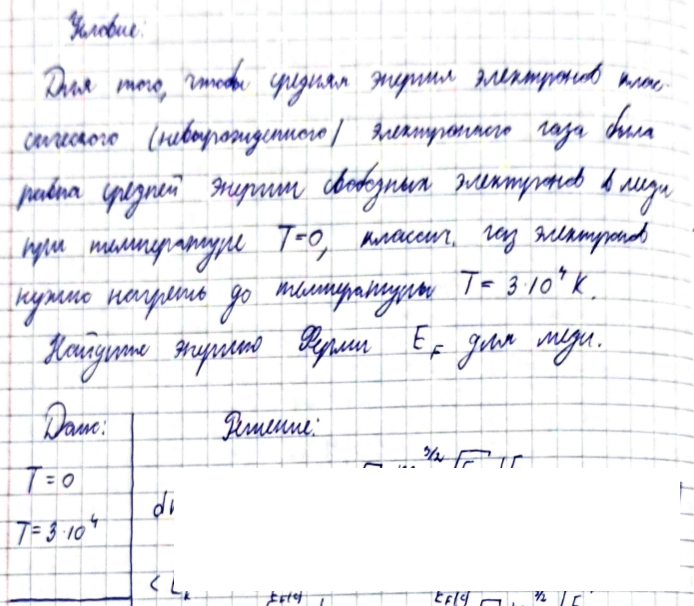 Условие:
Для того, чтобы средняя энергия электронов клас-
сического (невырожденного) электронного газа была
равна средней энергии свободных электронов в меди
при температуре T=0, классич. газ электронов
нужно нагреть до температуры T = 3·10⁴ K.
Найдите энергию Ферми E_F для меди.
Дано:
Решение:
T = 0
T = 3·10⁴